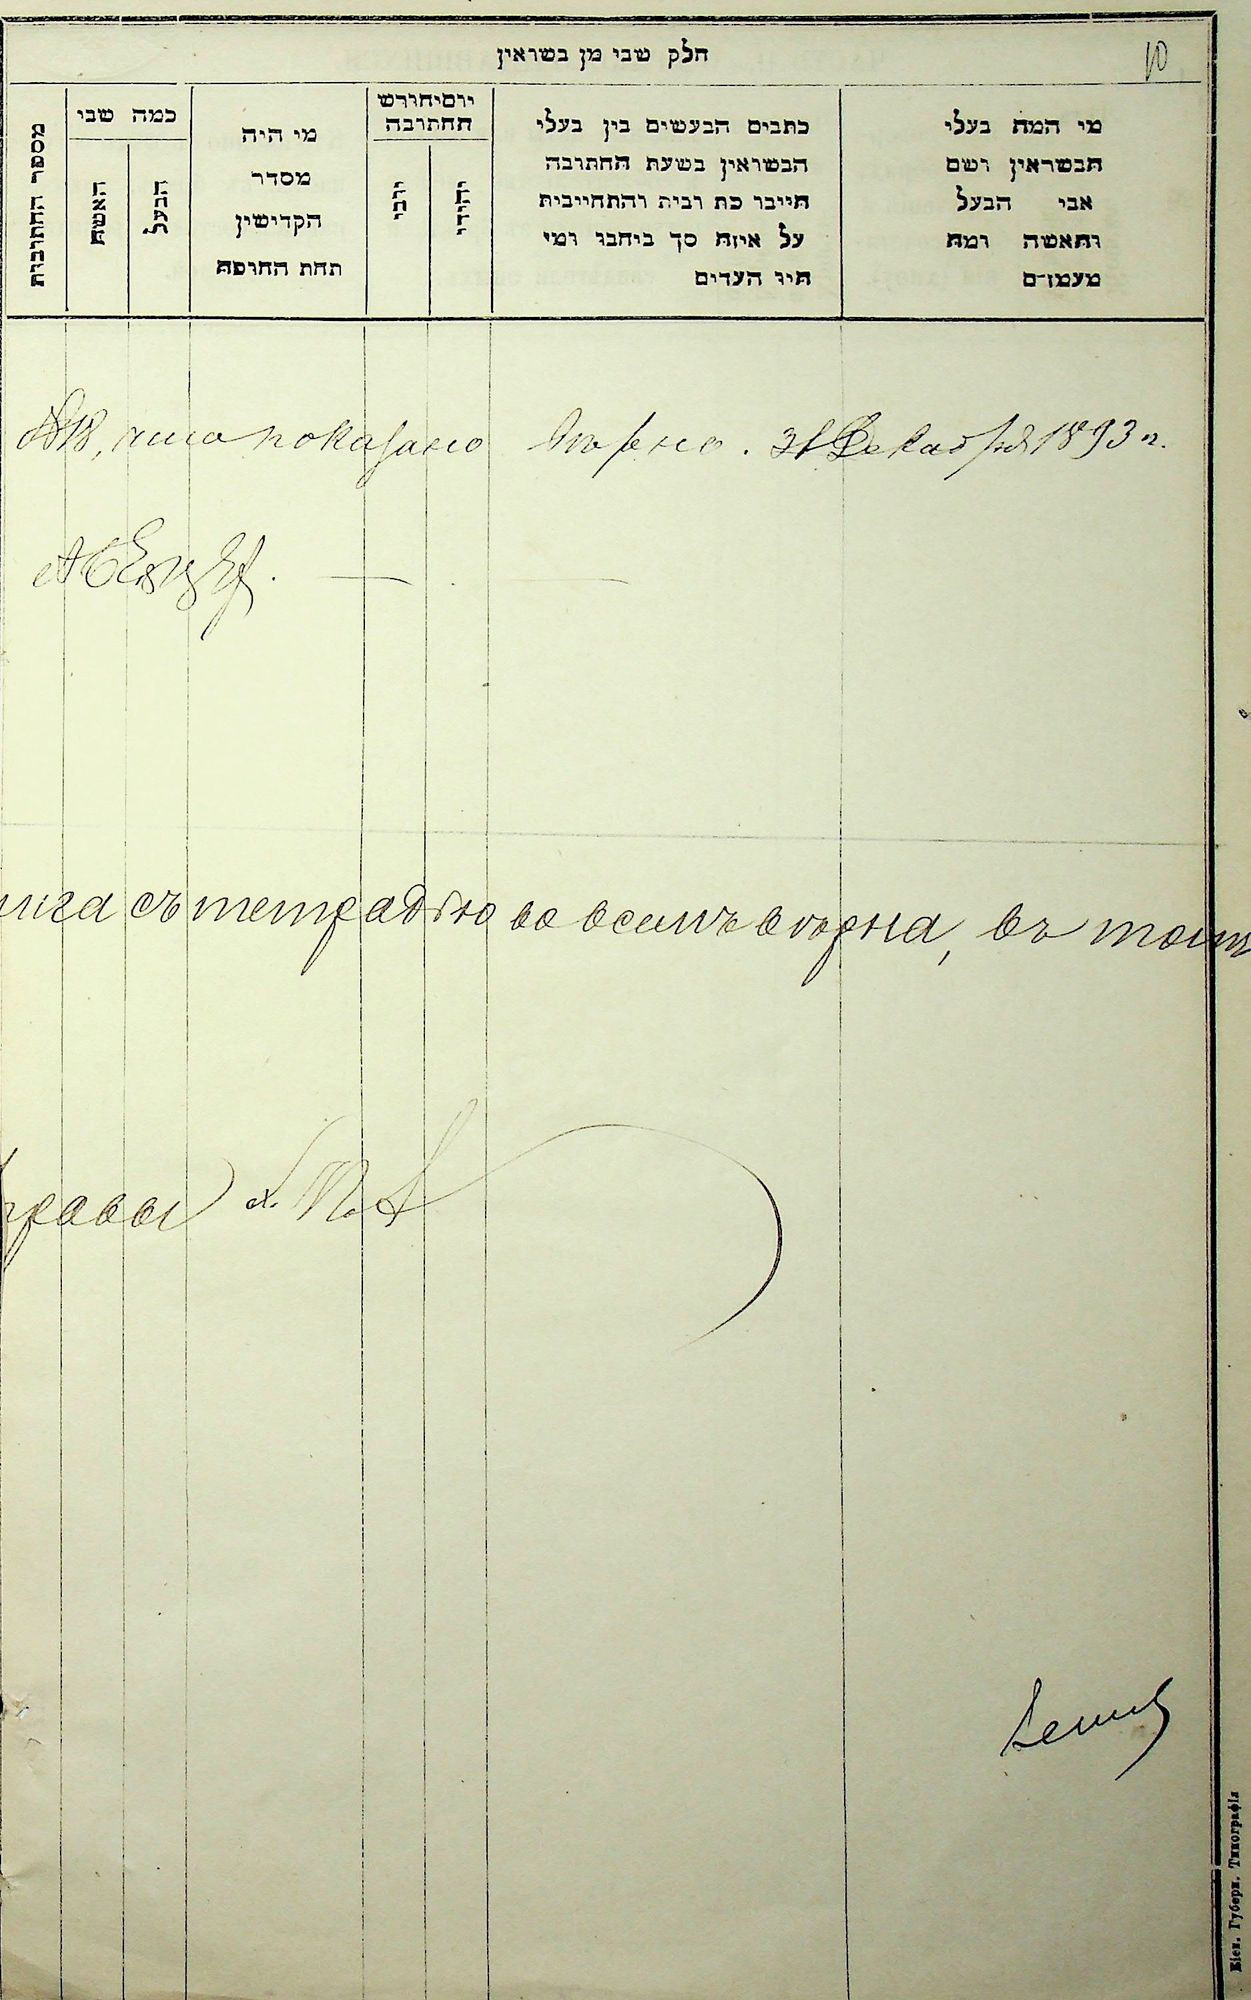 חלק שני מן נשואין
10
מספר החתונות
כמה שני
האשה
הבעל
מי היה
מסדר
הקדישין
תחת החופה
יום וחודש
החתונה
יהודי
כתבים הנעשים בין בעלי
הנשואין בשעת החתונה
היינו כת ובית והתחייבית
על איזה סך ניתנו ומי
היו העדים
מי המה בעלי
הנשואין ושם
אבי הבעל
והאשה ומה
מעמדם
показано вѣрно. 31 Декабря 1893 г.
нига съ тетрадью во всемъ вѣрна, въ томъ
правы
Кіев. Губерн. Типографія